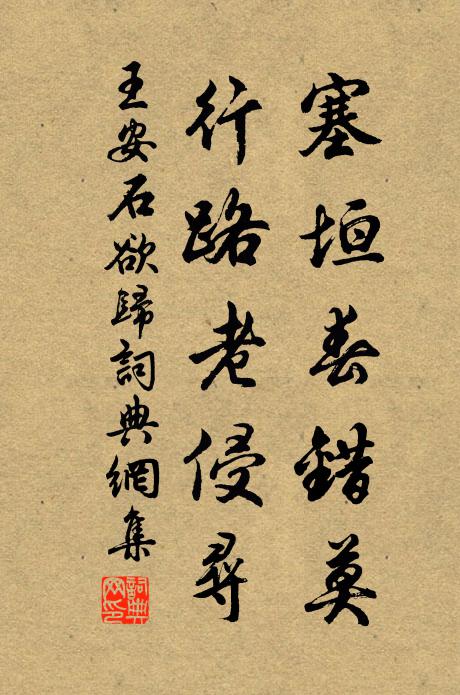 塞垣春錯莫
行路老侵尋
王安石欲歸詞典網集
詞典
网印